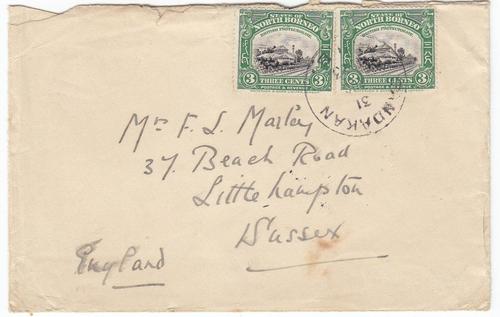 STATE OF
NORTH BORNEO
BRITISH PROTECTORATE
3 THREE CENTS 3
POSTAGE & REVENUE
STATE OF
NORTH BORNEO
BRITISH PROTECTORATE
3 THREE CENTS 3
POSTAGE & REVENUE
NDAKAN
31
Mrs F. L. Marley
37 Beach Road
Littlehampton
Sussex
England